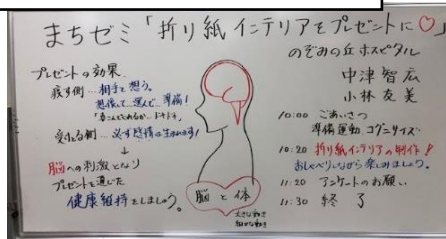 まちゼミ「折り紙インテリアをプレゼントに♡」
のぞみの丘ホスピタル
中津智広
小林友美
プレゼントの効果
渡す側…相手を想う。
想像して…選んで…準備!
受ける側…必ず感情は生まれます!
↓
脳への刺激となり
プレゼントを通じた
健康維持をしましょう。
脳と体
大きな動き
細かな動き
10:00 ごあいさつ
準備運動 コグニサイズ
10:20 折り紙インテリアの制作!
おしゃべりしながら楽しみましょう。
11:20 アンケートのお願い
11:30 終了